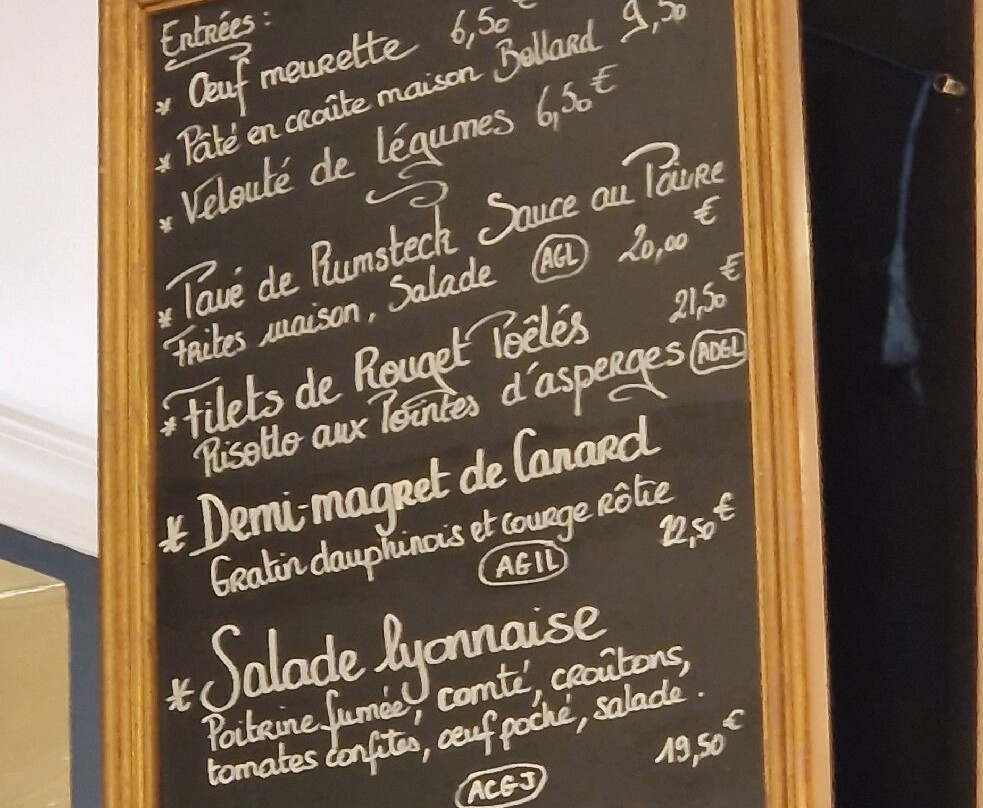 Entrées :
* Œuf meurette 6,50 €
* Pâté en croûte maison Bollard 9,50
* Velouté de légumes 6,50 €
* Pavé de Rumsteck Sauce au Poivre
Frites maison, Salade AGL 20,00 €
* Filets de Rouget Poêlés 21,50 €
Risotto aux Pointes d'asperges ADGL
* Demi-magret de Canard
Gratin dauphinois et courge Rôtie
AGIL 22,50 €
* Salade lyonnaise
Poitrine fumée, comté, croûtons,
tomates confites, œuf poché, salade.
ACGJ 19,50 €